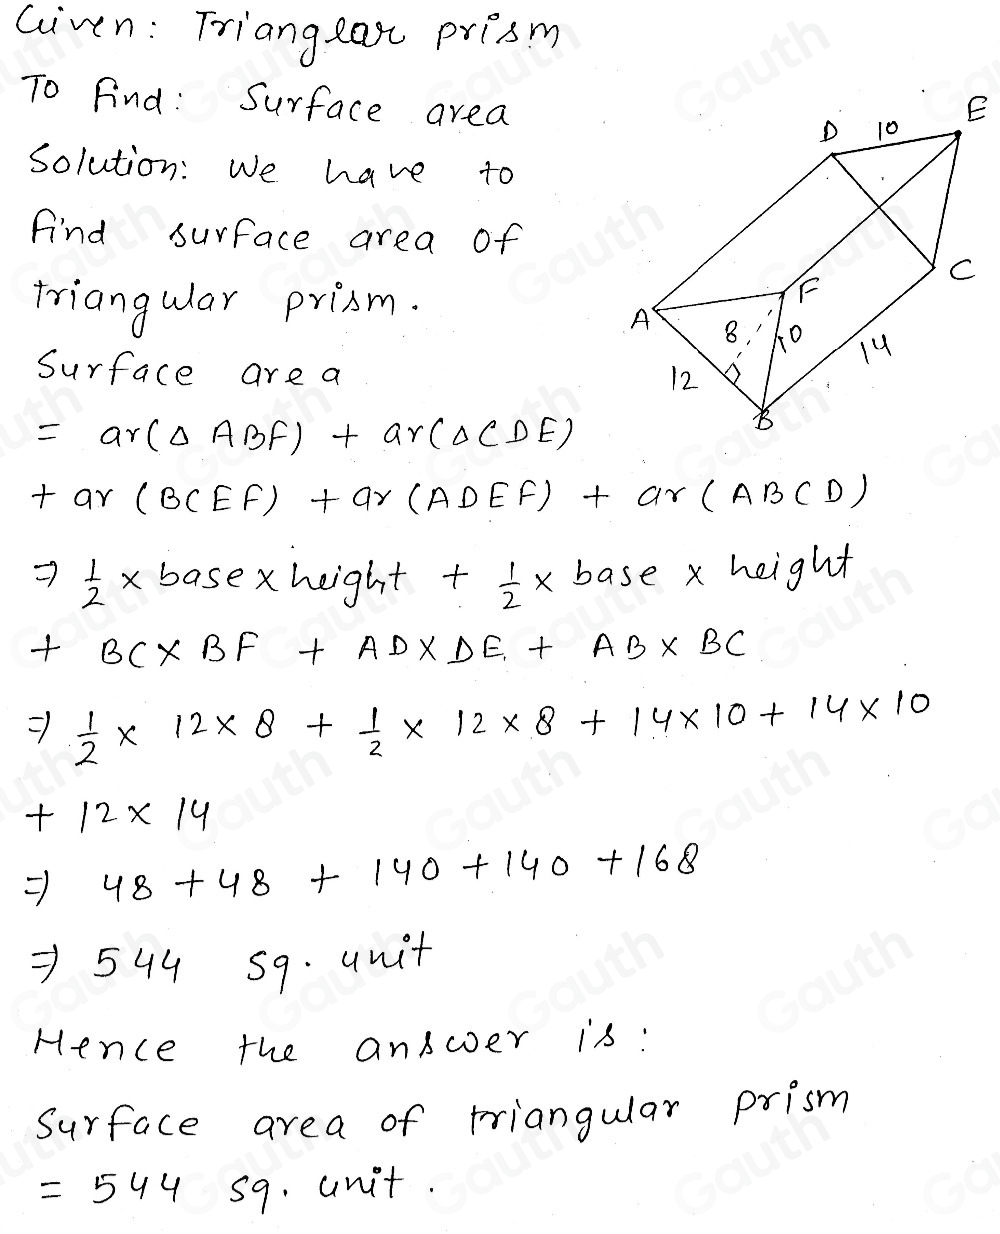 Given: Trianglar prism
To find: Surface area
Solution: We have to
find surface area of
triangular prism.
Surface area
= ar(△ ABF) + ar(△CDE)
+ ar (BCEF) + ar (ADEF) + ar (ABCD)
⇒ 1/2 × base × height + 1/2 × base × height
+ BC × BF + AD × DE + AB × BC
⇒ 1/2 × 12 × 8 + 1/2 × 12 × 8 + 14 × 10 + 14 × 10
+ 12 × 14
⇒ 48 + 48 + 140 + 140 + 168
⇒ 544 sq. unit
Hence the answer is:
Surface area of triangular prism
= 544 sq. unit.
D 10 E
A F C
8 10
12 14
B
Gauth